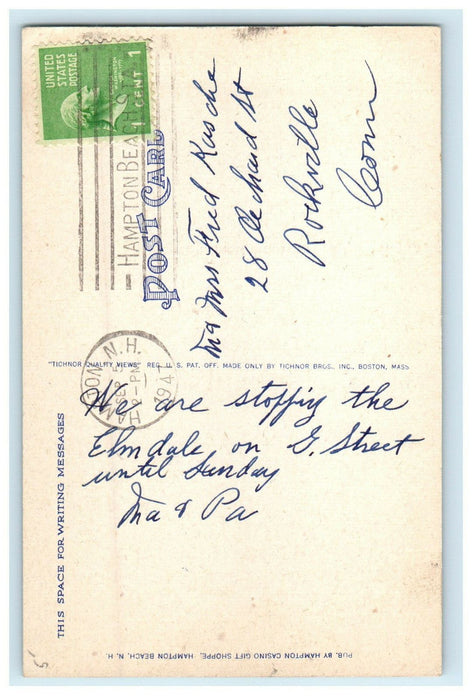 UNITED
STATES
POSTAGE
WASHINGTON
1 CENT 1
HAMPTON BEACH
POST CARD
Mr & Mrs Fred Kusche
28 Orchard St
Rockville
Conn
"TICHNOR QUALITY VIEWS," REG. U. S. PAT. OFF. MADE ONLY BY TICHNOR BROS., INC., BOSTON, MASS
HAMPTON, N.H.
SEP 5
-PM
1947
THIS SPACE FOR WRITING MESSAGES
We are stopping the
Elmdale on G. Street
until Sunday
Ma & Pa
PUB. BY HAMPTON CASINO GIFT SHOPPE, HAMPTON BEACH, N. H.